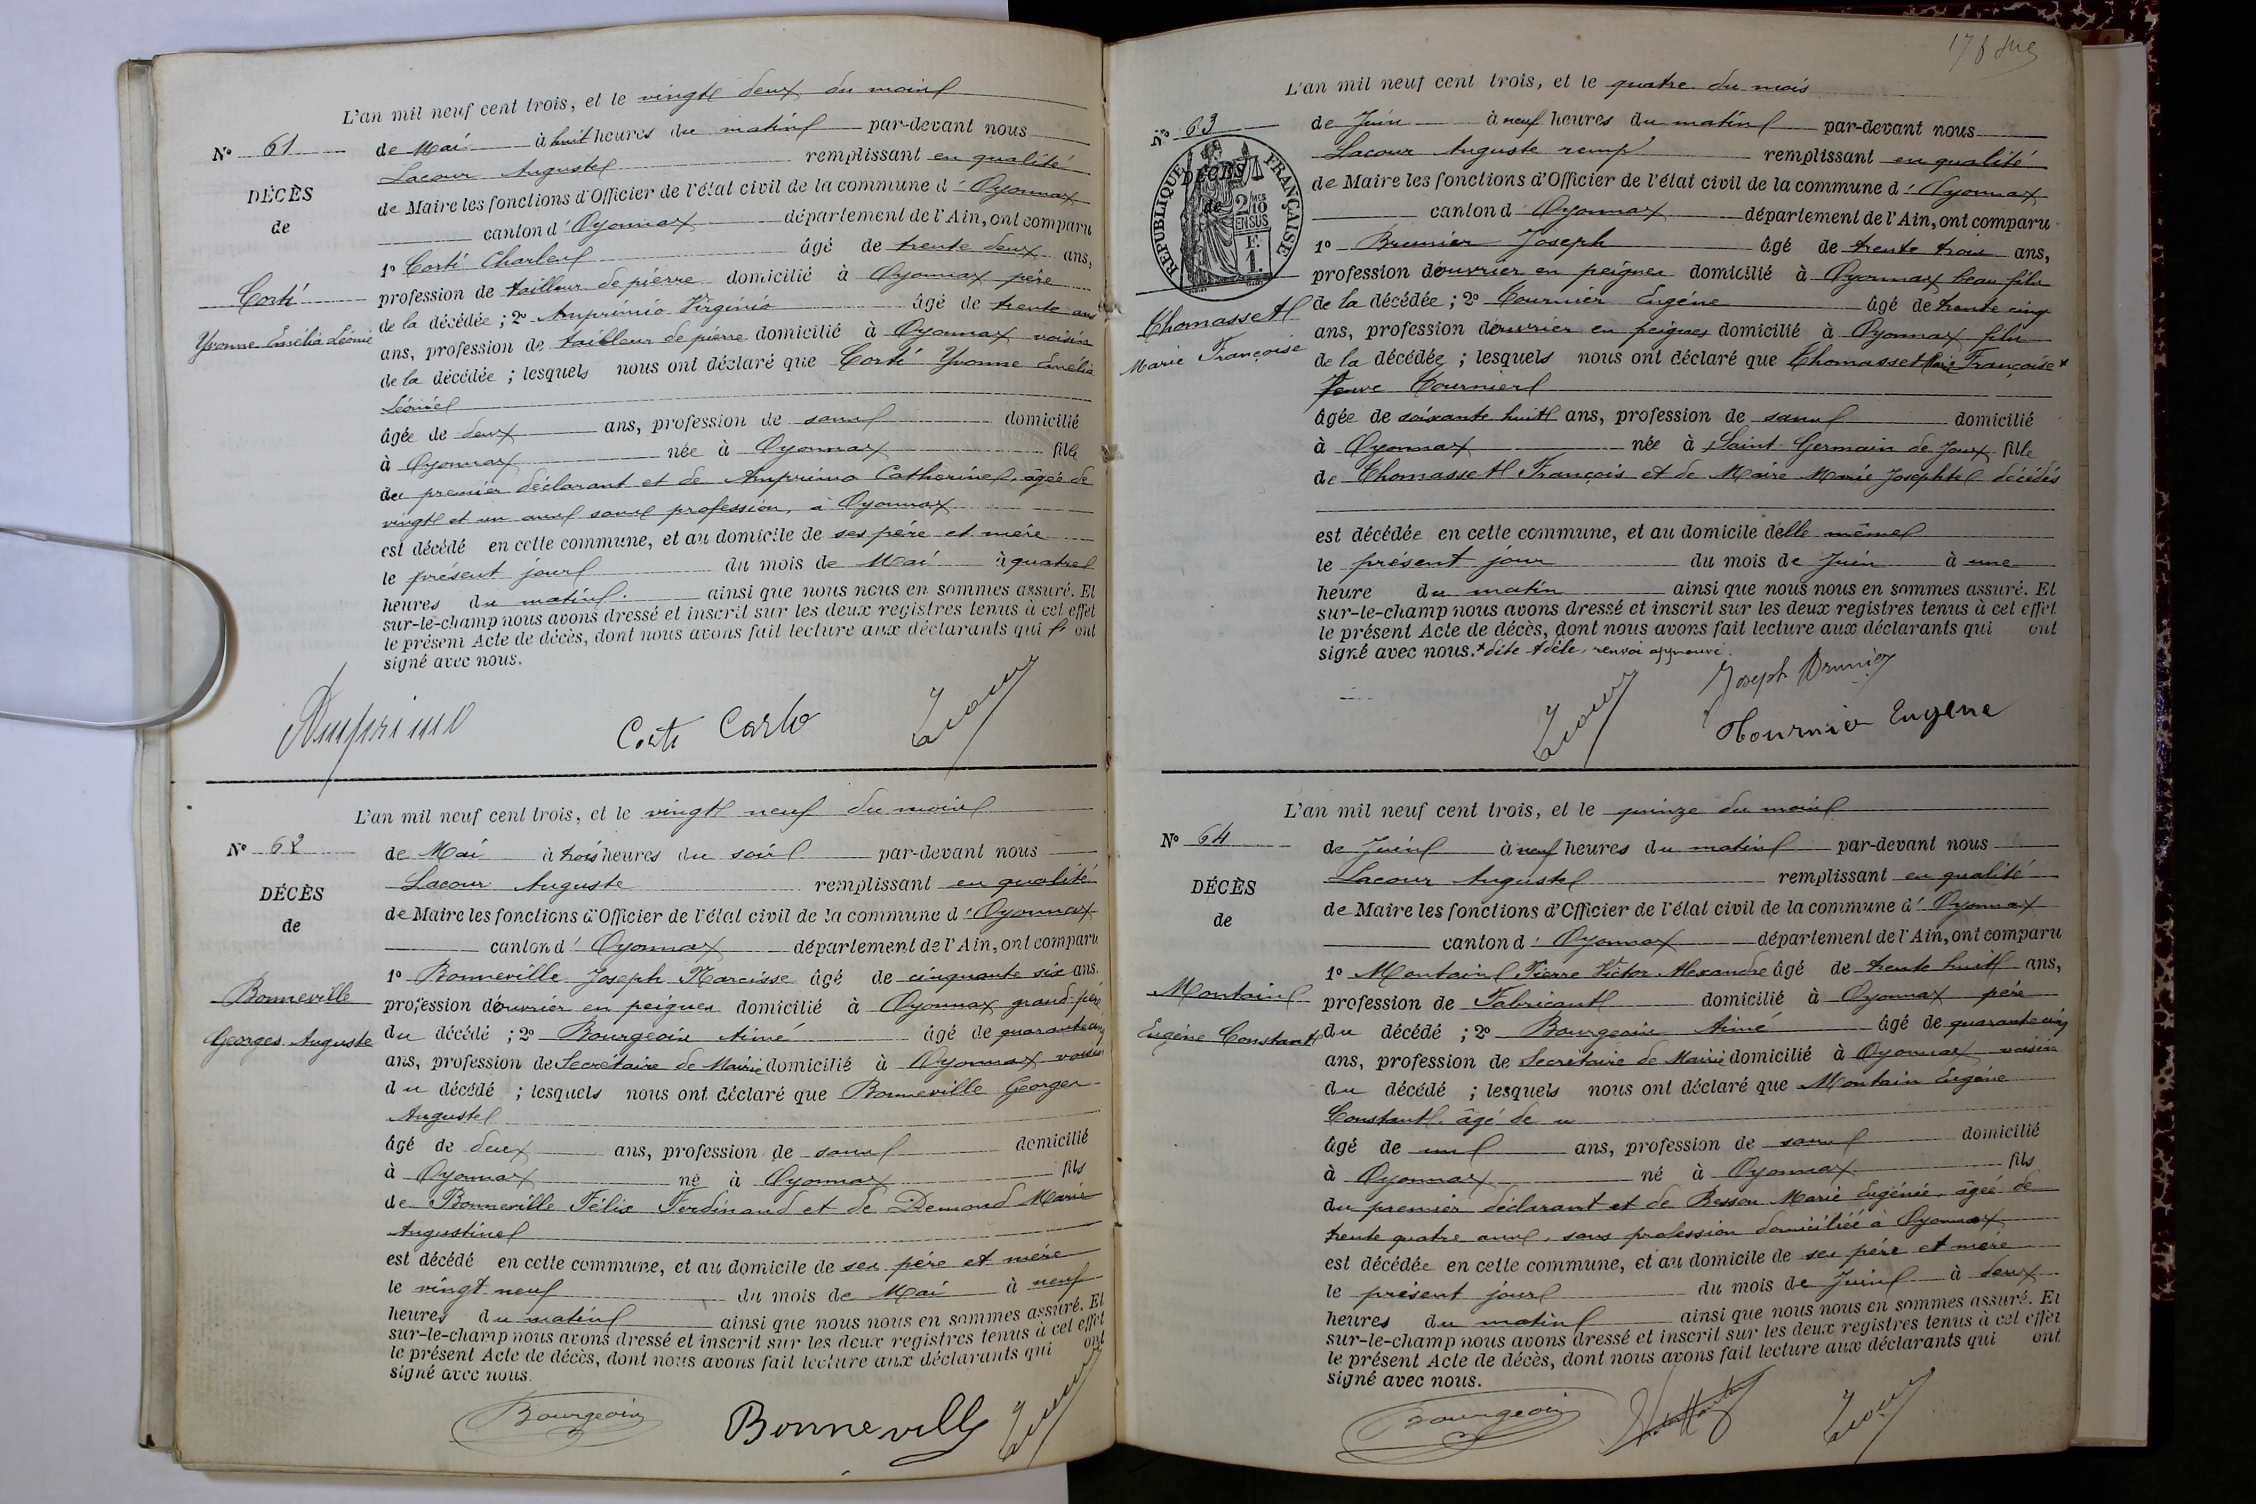 L'an mil neuf cent trois, et le vingt deux du mois
Nº 61
de Mai à huit heures du matin par-devant nous
Lacour Auguste remplissant en qualité
DÉCÈS
de Maire les fonctions d'Officier de l'état civil de la commune d'Oyonnax
de
canton d'Oyonnax département de l'Ain, ont comparu
1º Corti Charles âgé de trente deux ans,
Corti
profession de tailleur de pierre domicilié à Oyonnax père
de la décédée ; 2º Amprimo Virginio âgé de trente ans
Yvonne Emélia Léonie
ans, profession de tailleur de pierre domicilié à Oyonnax voisin
de la décédée ; lesquels nous ont déclaré que Corti Yvonne Emélia
Léonie
âgée de deux ans, profession de sans domicilié
à Oyonnax née à Oyonnax fille
du premier déclarant et de Amprimo Catherine, âgée de
vingt et un ans sans profession, à Oyonnax
est décédé en cette commune, et au domicile de ses père et mère
le présent jour du mois de Mai à quatre
heures du matin. ainsi que nous nous en sommes assuré. Et
sur-le-champ nous avons dressé et inscrit sur les deux registres tenus à cet effet
le présent Acte de décès, dont nous avons fait lecture aux déclarants qui ont
signé avec nous.
Amprimo Corti Carlo Lacour
L'an mil neuf cent trois, et le vingt neuf du mois
Nº 62
de Mai à trois heures du soir par-devant nous
Lacour Auguste remplissant en qualité
DÉCÈS
de Maire les fonctions d'Officier de l'état civil de la commune d'Oyonnax
de
canton d'Oyonnax département de l'Ain, ont comparu
1º Bonneville Joseph Narcisse âgé de cinquante six ans.
Bonneville
profession d'ouvrier en peignes domicilié à Oyonnax grand-père
Georges Auguste
du décédé ; 2º Bourgeois Aimé âgé de quarante cinq
ans, profession de Secrétaire de Mairie domicilié à Oyonnax voisin
du décédé ; lesquels nous ont déclaré que Bonneville Georges
Auguste
âgé de deux ans, profession de sans domicilié
à Oyonnax né à Oyonnax fils
de Bonneville Félix Ferdinand et de Demond Marie
Augustine
est décédé en cette commune, et au domicile de ses père et mère
le vingt neuf du mois de Mai à neuf
heures du matin ainsi que nous nous en sommes assuré. Et
sur-le-champ nous avons dressé et inscrit sur les deux registres tenus à cet effet
le présent Acte de décès, dont nous avons fait lecture aux déclarants qui ont
signé avec nous.
Bourgeois Bonneville Lacour
L'an mil neuf cent trois, et le quatre du mois
Nº 63
de Juin à neuf heures du matin par-devant nous
Lacour Auguste remplissant en qualité
DÉCÈS
de
RÉPUBLIQUE FRANÇAISE
2/10
EN SUS
de Maire les fonctions d'Officier de l'état civil de la commune d'Oyonnax
canton d'Oyonnax département de l'Ain, ont comparu
1º Brunier Joseph âgé de trente trois ans,
profession d'ouvrier en peignes domicilié à Oyonnax beau fils
Thomasset
de la décédée ; 2º Tournier Eugène âgé de trente cinq
Marie Françoise
ans, profession d'ouvrier en peignes domicilié à Oyonnax fils
de la décédée ; lesquels nous ont déclaré que Thomasset Marie Françoise *
Veuve Tournier
âgée de soixante huit ans, profession de sans domicilié
à Oyonnax née à Saint Germain de Joux fille
de Thomasset François et de Maire Marie Josephte décédés
est décédée en cette commune, et au domicile d'elle même
le présent jour du mois de Juin à une
heure du matin ainsi que nous nous en sommes assuré. Et
sur-le-champ nous avons dressé et inscrit sur les deux registres tenus à cet effet
le présent Acte de décès, dont nous avons fait lecture aux déclarants qui ont
signé avec nous. * dite Adèle, renvoi approuvé.
Joseph Brunier
Lacour Tournier Eugène
L'an mil neuf cent trois, et le quinze du mois
Nº 64
de Juin à neuf heures du matin par-devant nous
Lacour Auguste remplissant en qualité
DÉCÈS
de Maire les fonctions d'Officier de l'état civil de la commune d'Oyonnax
de
canton d'Oyonnax département de l'Ain, ont comparu
1º Montain Pierre Victor Alexandre âgé de trente huit ans,
Montain
profession de Fabricant domicilié à Oyonnax père
Eugène Constant
du décédé ; 2º Bourgeois Aimé âgé de quarante cinq
ans, profession de Secrétaire de Mairie domicilié à Oyonnax voisin
du décédé ; lesquels nous ont déclaré que Montain Eugène
Constant, âgé de u
âgé de un ans, profession de sans domicilié
à Oyonnax né à Oyonnax fils
du premier déclarant et de Besson Marie Eugénie, âgée de
trente quatre ans, sans profession domiciliée à Oyonnax
est décédée en cette commune, et au domicile de ses père et mère
le présent jour du mois de Juin à deux
heures du matin ainsi que nous nous en sommes assuré. Et
sur-le-champ nous avons dressé et inscrit sur les deux registres tenus à cet effet
le présent Acte de décès, dont nous avons fait lecture aux déclarants qui ont
signé avec nous.
Bourgeois Lacour